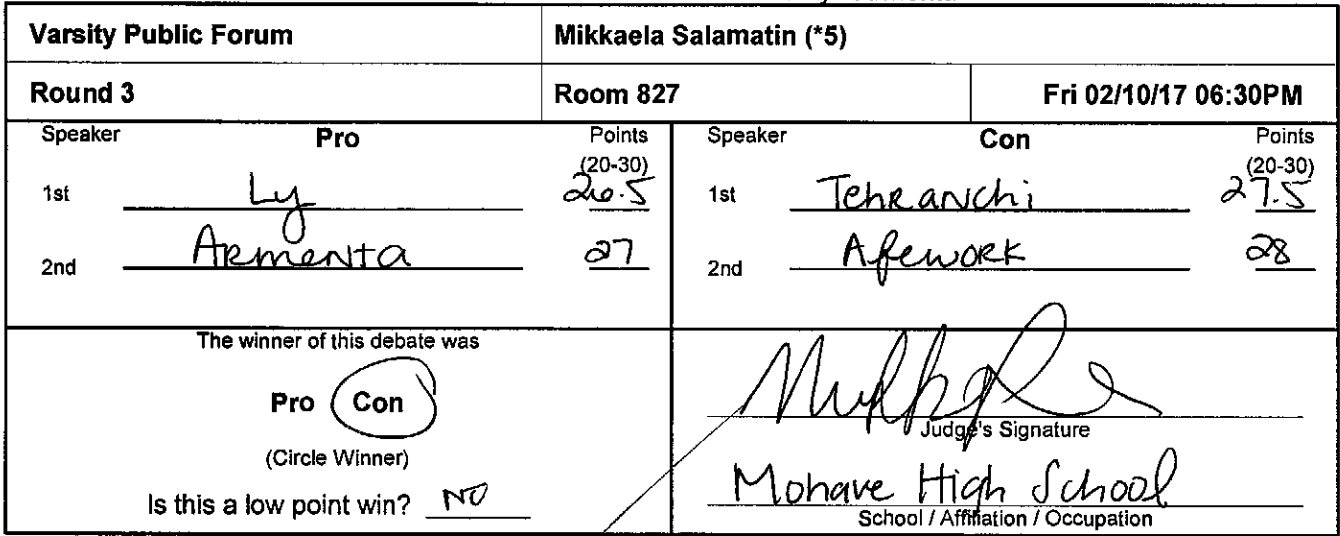 Varsity Public Forum Mikkaela Salamatin (*5)
Round 3 Room 827 Fri 02/10/17 06:30PM
Speaker Pro Points (20-30)
1st Ly 26.5
2nd Armenta 27
Speaker Con Points (20-30)
1st Tehranchi 27.5
2nd Afework 28
The winner of this debate was
Pro Con
(Circle Winner)
Is this a low point win? NO
Judge's Signature
Mohave High School
School / Affiliation / Occupation